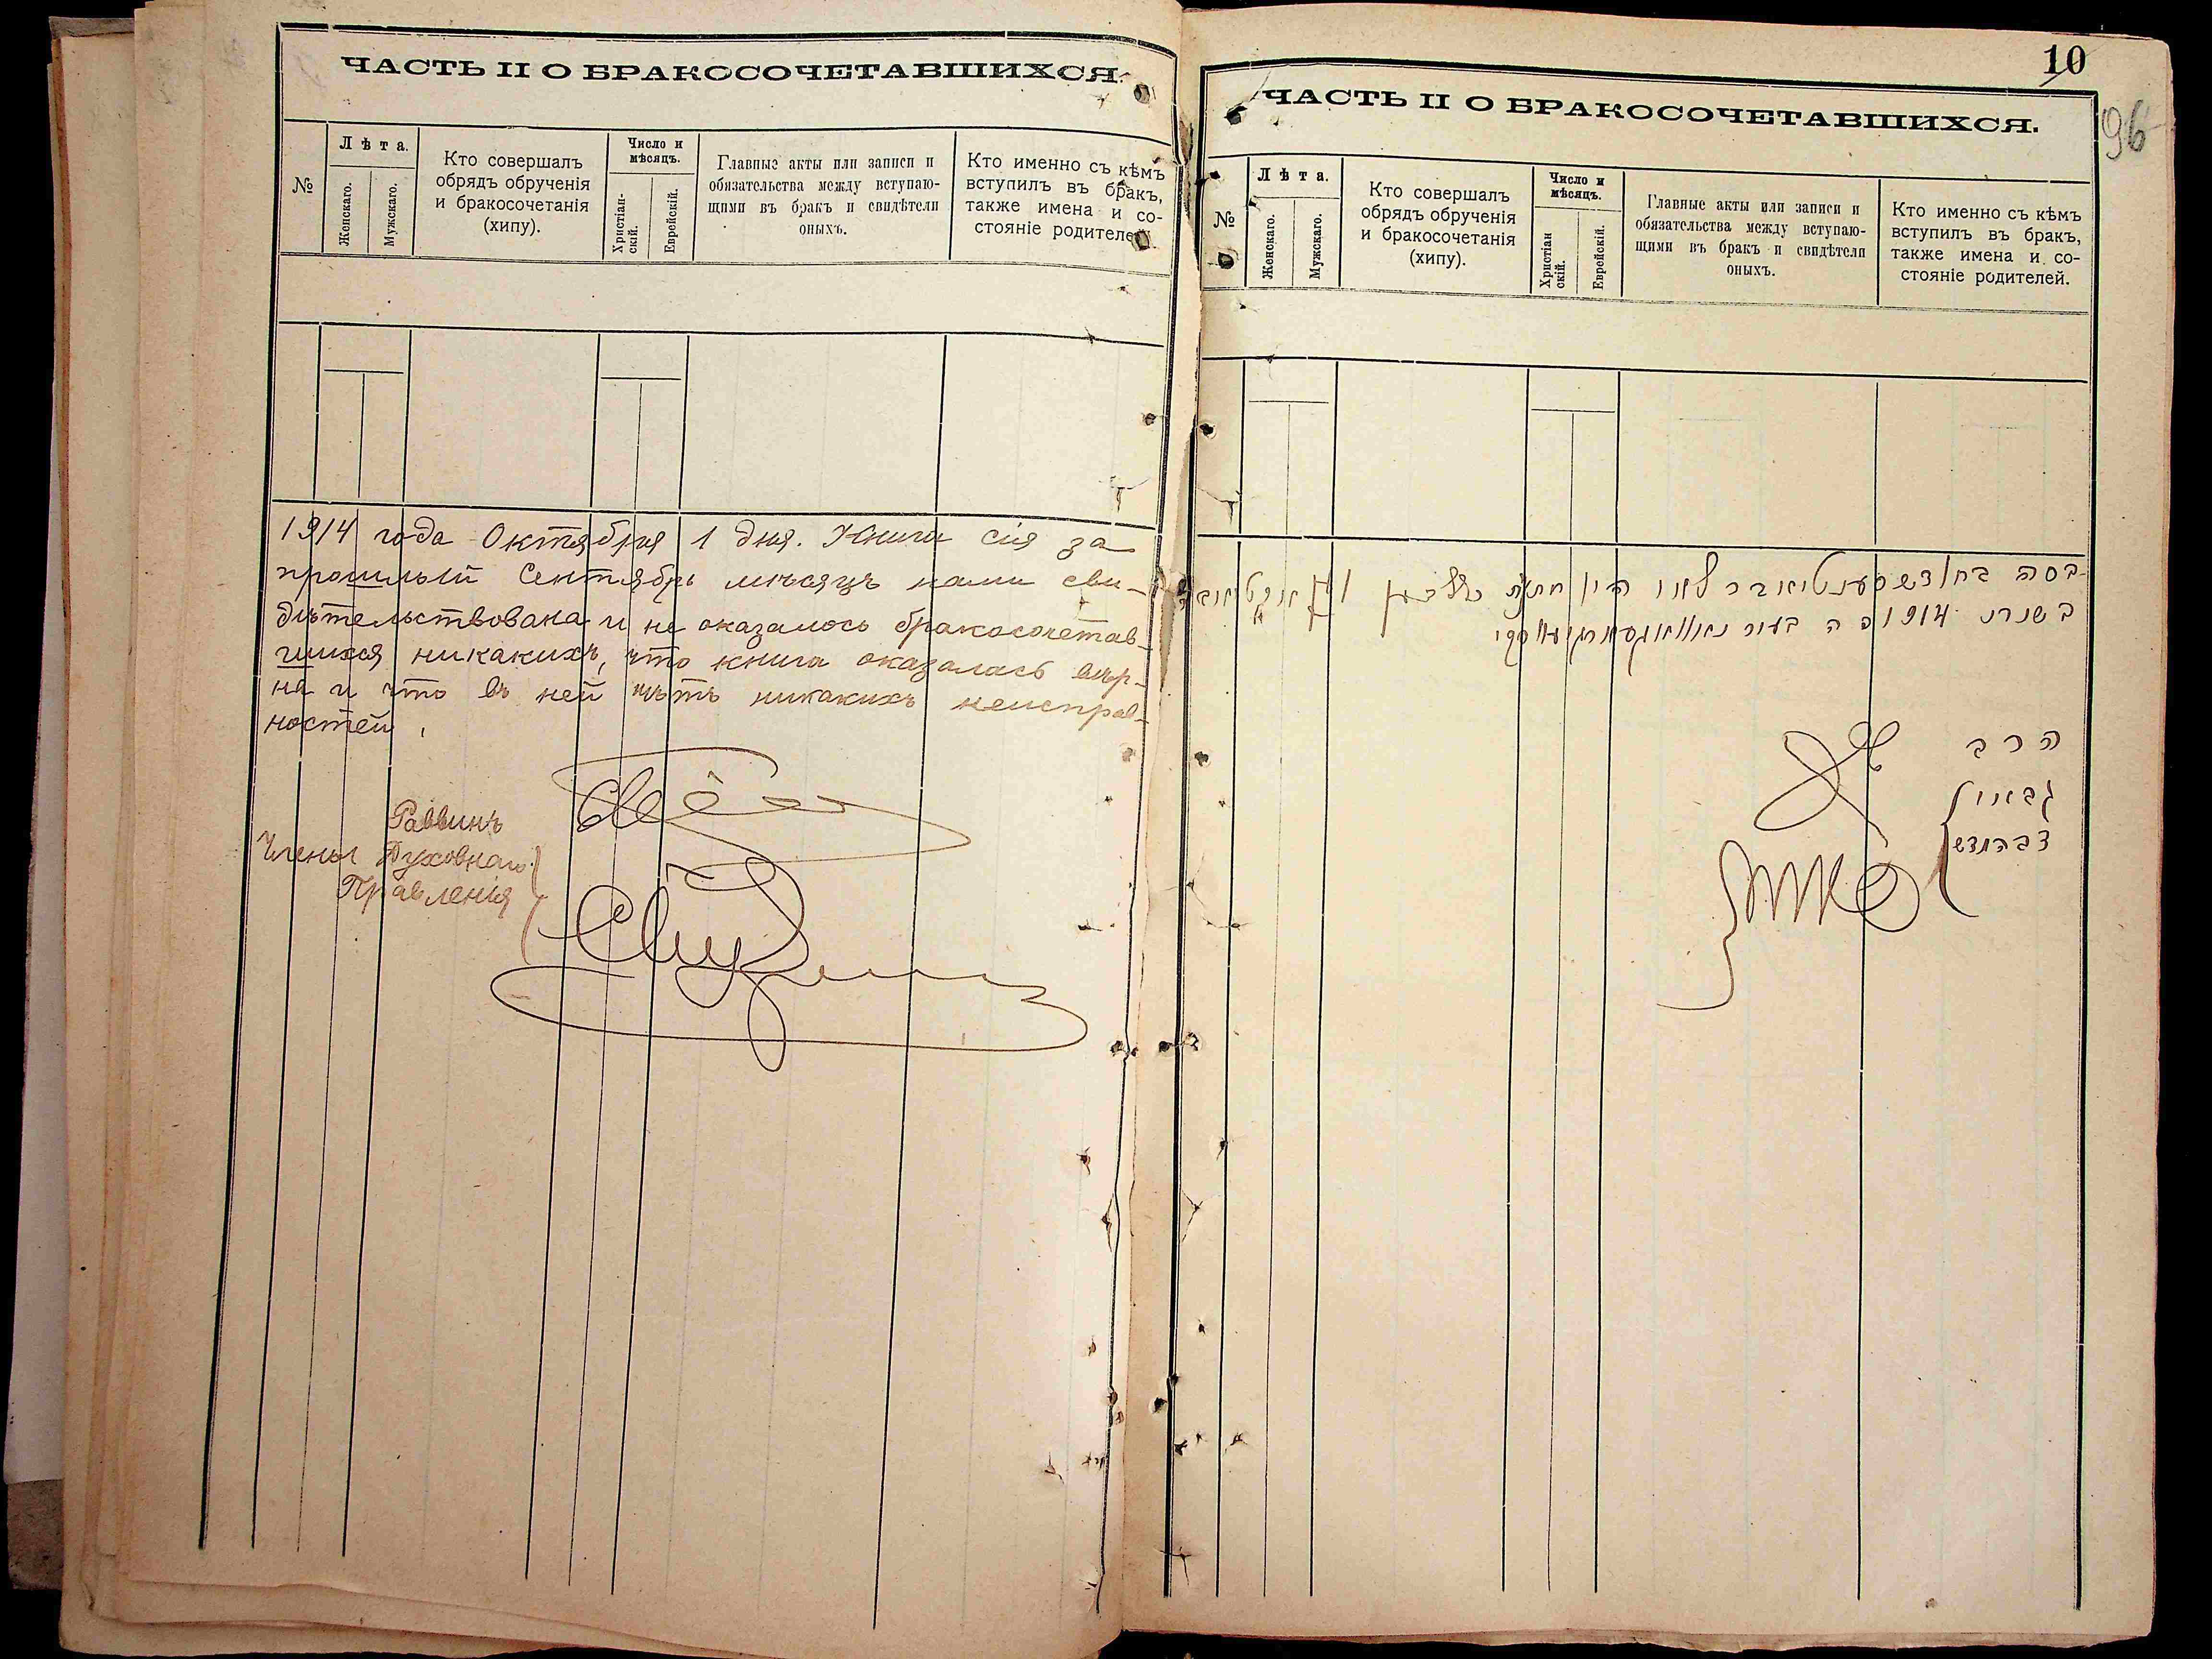 ЧАСТЬ II О БРАКОСОЧЕТАВШИХСЯ.
№
Лѣта.
Женскаго.
Мужскаго.
Кто совершалъ
обрядъ обрученія
и бракосочетанія
(хипу).
Число и
мѣсяцъ.
Христіан-
скій.
Еврейскій.
Главныя акты или записи и
обязательства между вступаю-
щими въ бракъ и свидѣтели
оныхъ.
Кто именно съ кѣмъ
вступилъ въ бракъ,
также имена и со-
стояніе родителей.
1914 года Октября 1 дня. Книга сія за
прошлый Сентябрь мѣсяцъ нами сви-
дѣтельствована и не оказалось бракосочетав-
шихся никакихъ, что книга оказалась вѣр-
на и что въ ней нѣтъ никакихъ неисправ-
ностей.
Раввинъ
Члены Духовнаго
Правленія
10
96
ЧАСТЬ II О БРАКОСОЧЕТАВШИХСЯ.
№
Лѣта.
Женскаго.
Мужскаго.
Кто совершалъ
обрядъ обрученія
и бракосочетанія
(хипу).
Число и
мѣсяцъ.
Христіан
скій.
Еврейскій.
Главные акты или записи и
обязательства между вступаю-
щими въ бракъ и свидѣтели
оныхъ.
Кто именно съ кѣмъ
вступилъ въ бракъ,
также имена и со-
стояніе родителей.
בחודש סענטיאבר לא היו
בשנת 1914 פה בעיר
הרב
גבאי
דבהמדש